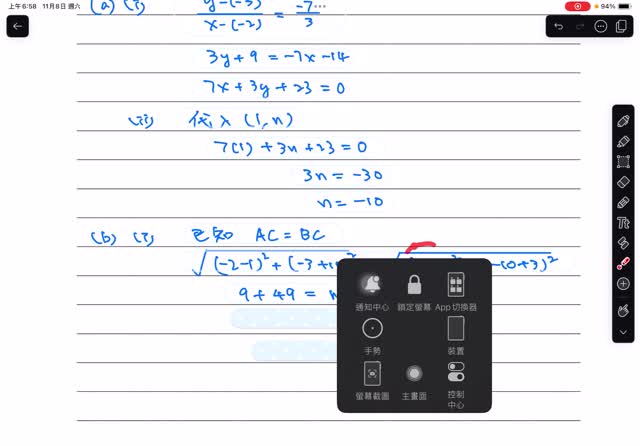 上午6:58 11月8日 週六 94%
(a) (i) y-(-3) / x-(-2) = -7/3
3y + 9 = -7x - 14
7x + 3y + 23 = 0
(ii) 代入 (1, n)
7(1) + 3n + 23 = 0
3n = -30
n = -10
(b) (i) 已知 AC = BC
√(-2-1)² + (-3+1 -10+3)²
9 + 49 =
通知中心 鎖定螢幕 App 切換器
手勢 裝置
螢幕截圖 主畫面 控制中心